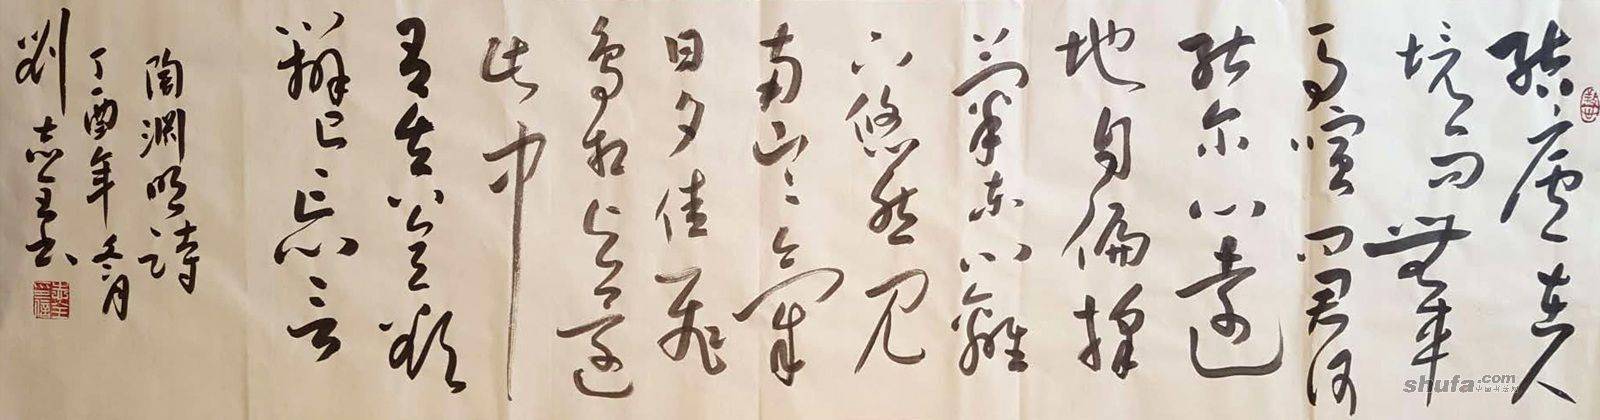 結廬在人
境而無車
馬喧問君何
能尔心遠
地自偏採
菊東籬
下悠然見
南山〻氣
日夕佳飛
鳥相與還
此中
有真意欲
辨已忘言
陶淵明詩
丁酉年冬月
劉志玉書
shufa.com